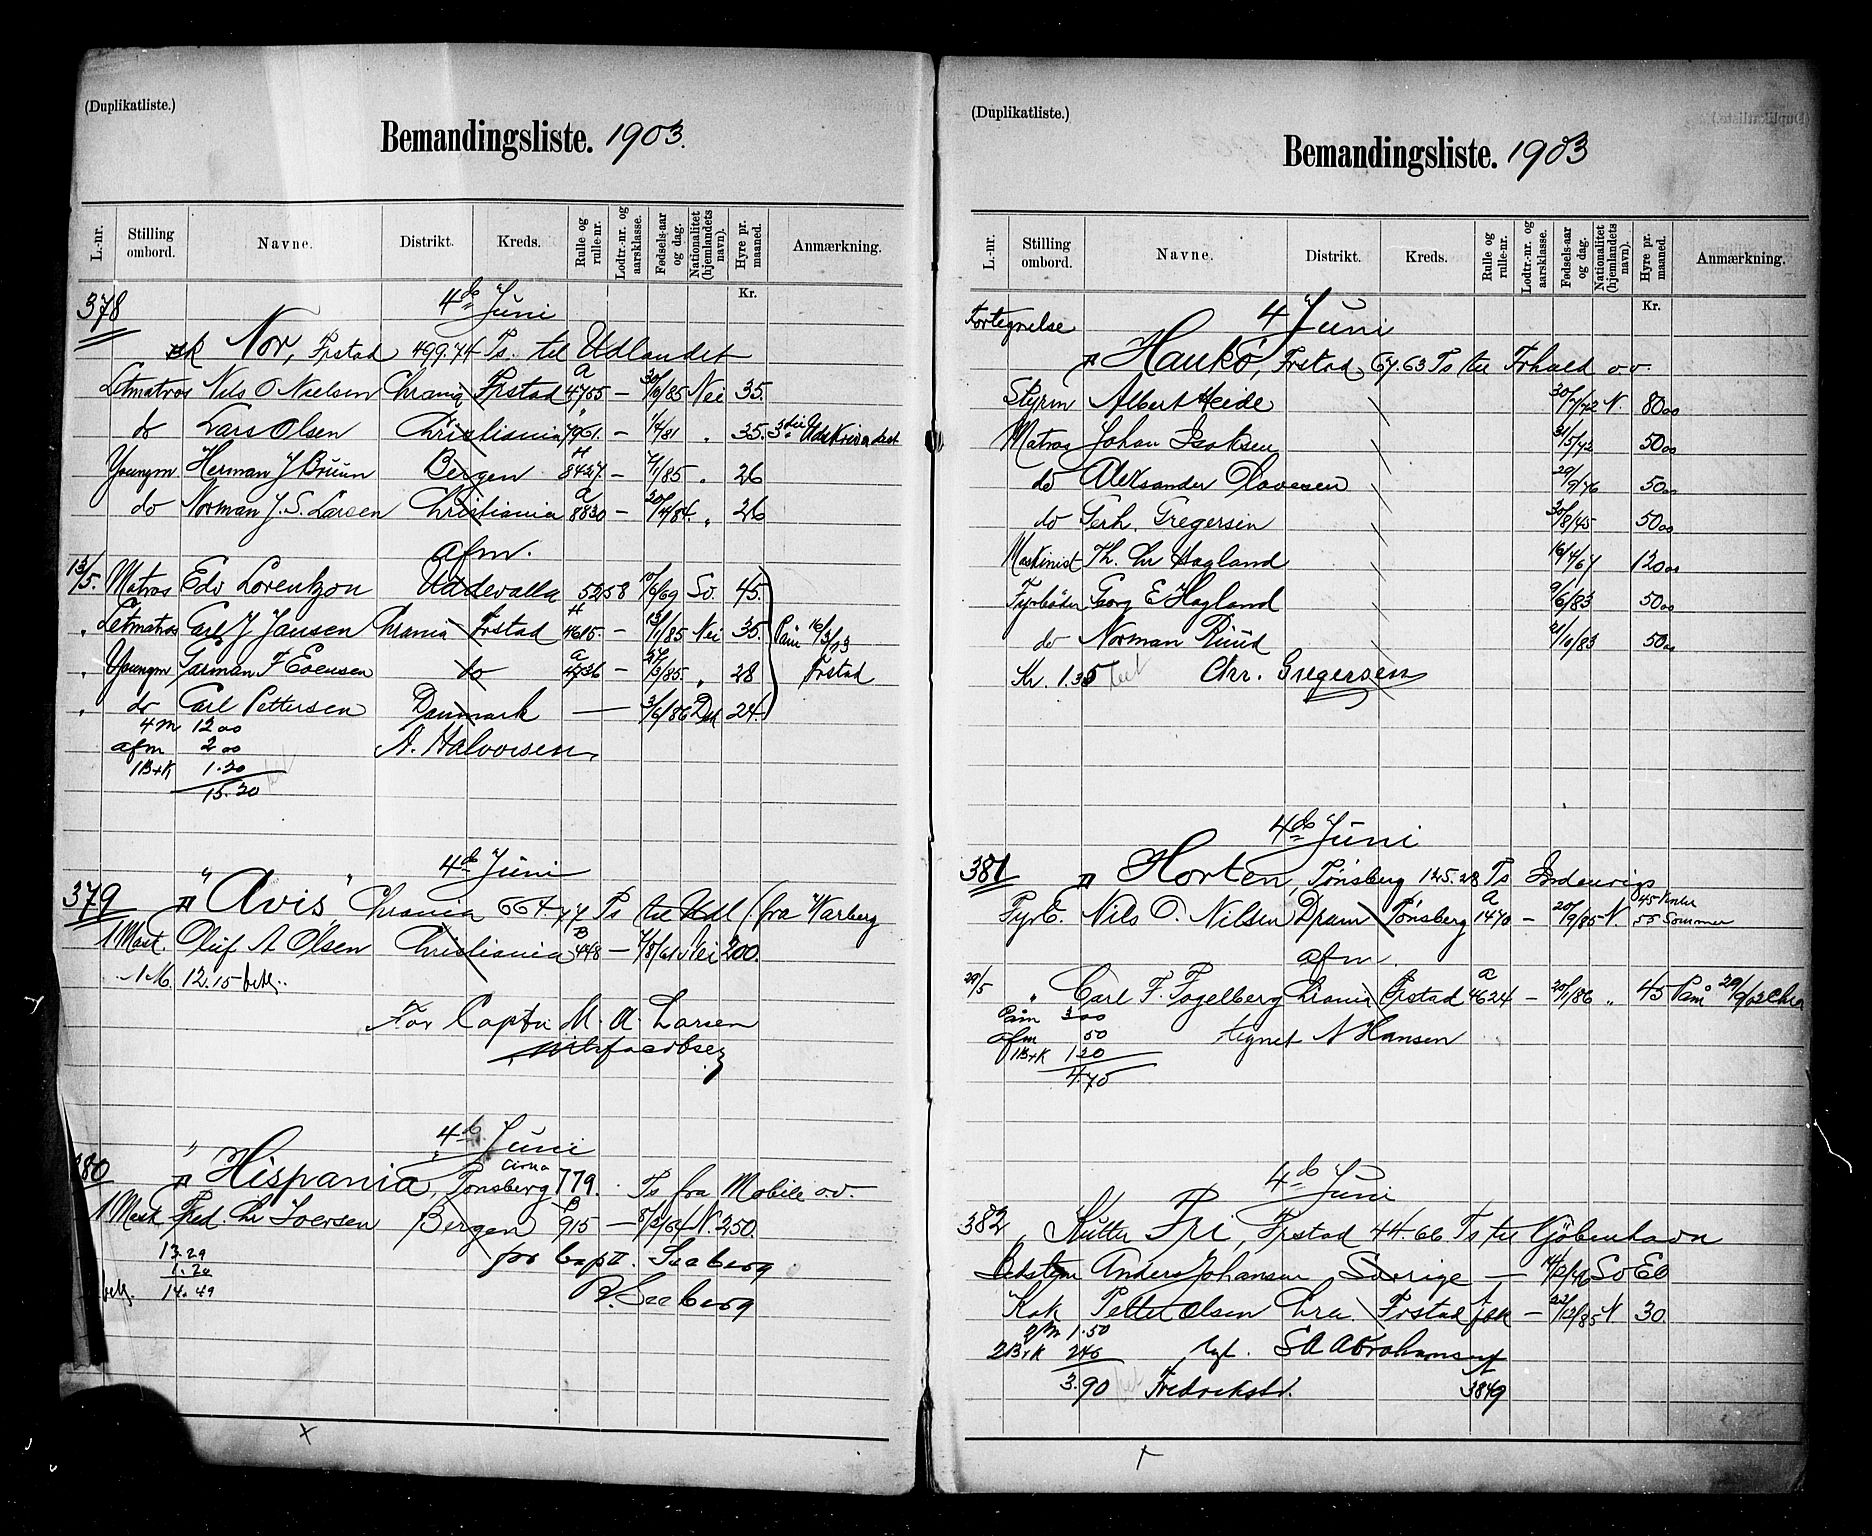 (Duplikatliste.)
Bemandingsliste. 1903.
L.-nr. Stilling ombord. Navne. Distrikt. Kreds. Rulle og rulle-nr. Lodtr.-nr. og aarsklasse. Fødsels-aar og dag. Nationalitet (hjemlandets navn). Hyre pr. maaned. Anmærkning.
Kr.
378 4de Juni
Nor, Frstad 499.74 Ts. til Udlandet
Letmatros Nils O Nielsen Chrania Frstad a 4755 — 30/9/85 Nei 35.
do Lars Olsen Christiania 7961 — 1/4/81 " 35.
Youngm. Herman J Bruun Bergen 8427 — 7/1/85 " 26
do Norman J. S. Larsen Christiania a 8830 — 20/12/84 " 26
afm.
13/5. Matros Edv Lorentzon Uddevalla 5258 10/6/69 Sv. 45.
" Letmatros Carl J Jansen Chrania Frstad 4615 — 13/1/85 Nei 35. Påm 16/3/03
" Youngm Garman F Evensen do a 4736 — 27/3/85 " 28 Frstad
" do Carl Pettersen Danmark — 3/6/86 Dk 24.
4 m 12 00
afm 2 00 A. Halvorsen
1B+K 1.20
15.20
4de Juni
379 "Avis" Chrania 664,77 Ts til Udl (fra Warberg
1 Mask. Oluf A Olsen Christiania B 448 — 7/8/61 Nei 200.
1 M. 12.15 betl.
For Captn M. A. Larsen
4de Juni
380 "Hispania, Tønsberg cirka 779. Ts fra Mobile o.v.
1 Mask Fred. Chr Iversen Bergen B 915 — 8/3/64 N. 250.
13.29 for Capt. Seeberg
1.20
betl. 14.49 V. Seeberg
(Duplikatliste.)
Bemandingsliste. 1903
L.-nr. Stilling ombord. Navne. Distrikt. Kreds. Rulle og rulle-nr. Lodtr.-nr. og aarsklasse. Fødsels-aar og dag. Nationalitet (hjemlandets navn). Hyre pr. maaned. Anmærkning.
Kr.
Fortegnelse 4 Juni
Hankø, Frstad, 67.63 Ts til Frhald o.v.
Styrm Albert Heide 30/7/72 N. 80 00
Matros Johan Isaksen 31/5/72 50 00
do Aleksander Olavesen 29/9/76 50 00
do Gerh. Gregersen 30/8/45 50 00
Maskinist Th. Chr Hagland 16/4/67 120 00
Fyrbøder Georg E Hagland 9/6/83 50 00
do Norman Ruud 21/10/83 50 00
Kr. 1.35 Chr. Gregersen
4de Juni
381 Horten, Tønsberg 125.28 Ts Indenrigs
Fyrb. Nils O. Nilsen Dram Tønsberg a 1470 — 20/9/85 N. 45 Vinter 55 Sommer
afm.
29/5 " Carl F. Fogelberg Chrania Frstad a 4624 — 20/1/86 " 45 Påm 29/9/02 Chra
Påm 3 00
afm 50 tegnet N Hansen
1B+K 120
4.70
4de Juni
382 Kutter Fri, Frstad 44.66 Ts til Kjøbenhavn
Anders Johansen Sverige — 14/12/46 Sv 60
Kok Petter Olsen Chra. Frstad — 22/12/85 N. 30.
2/m 1.50
2B+K 240 S A Abrahamsen
3.90 Fredrikstd. 3849